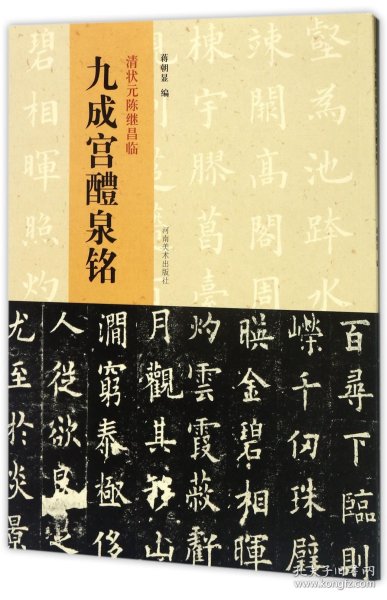 壑為池跨水
竦闕高閣周
棟宇膠葛臺
碧相暉照灼
蒋朝显 编
清状元陈继昌临
九成宫醴泉铭
河南美术出版社
百尋下臨則
嶸千仞珠璧
暎金碧相暉
灼雲霞蔽虧
月觀其移山
澗窮泰極侈
人從欲良足
尤至於炎景
孔夫子旧书网
www.kongfz.com